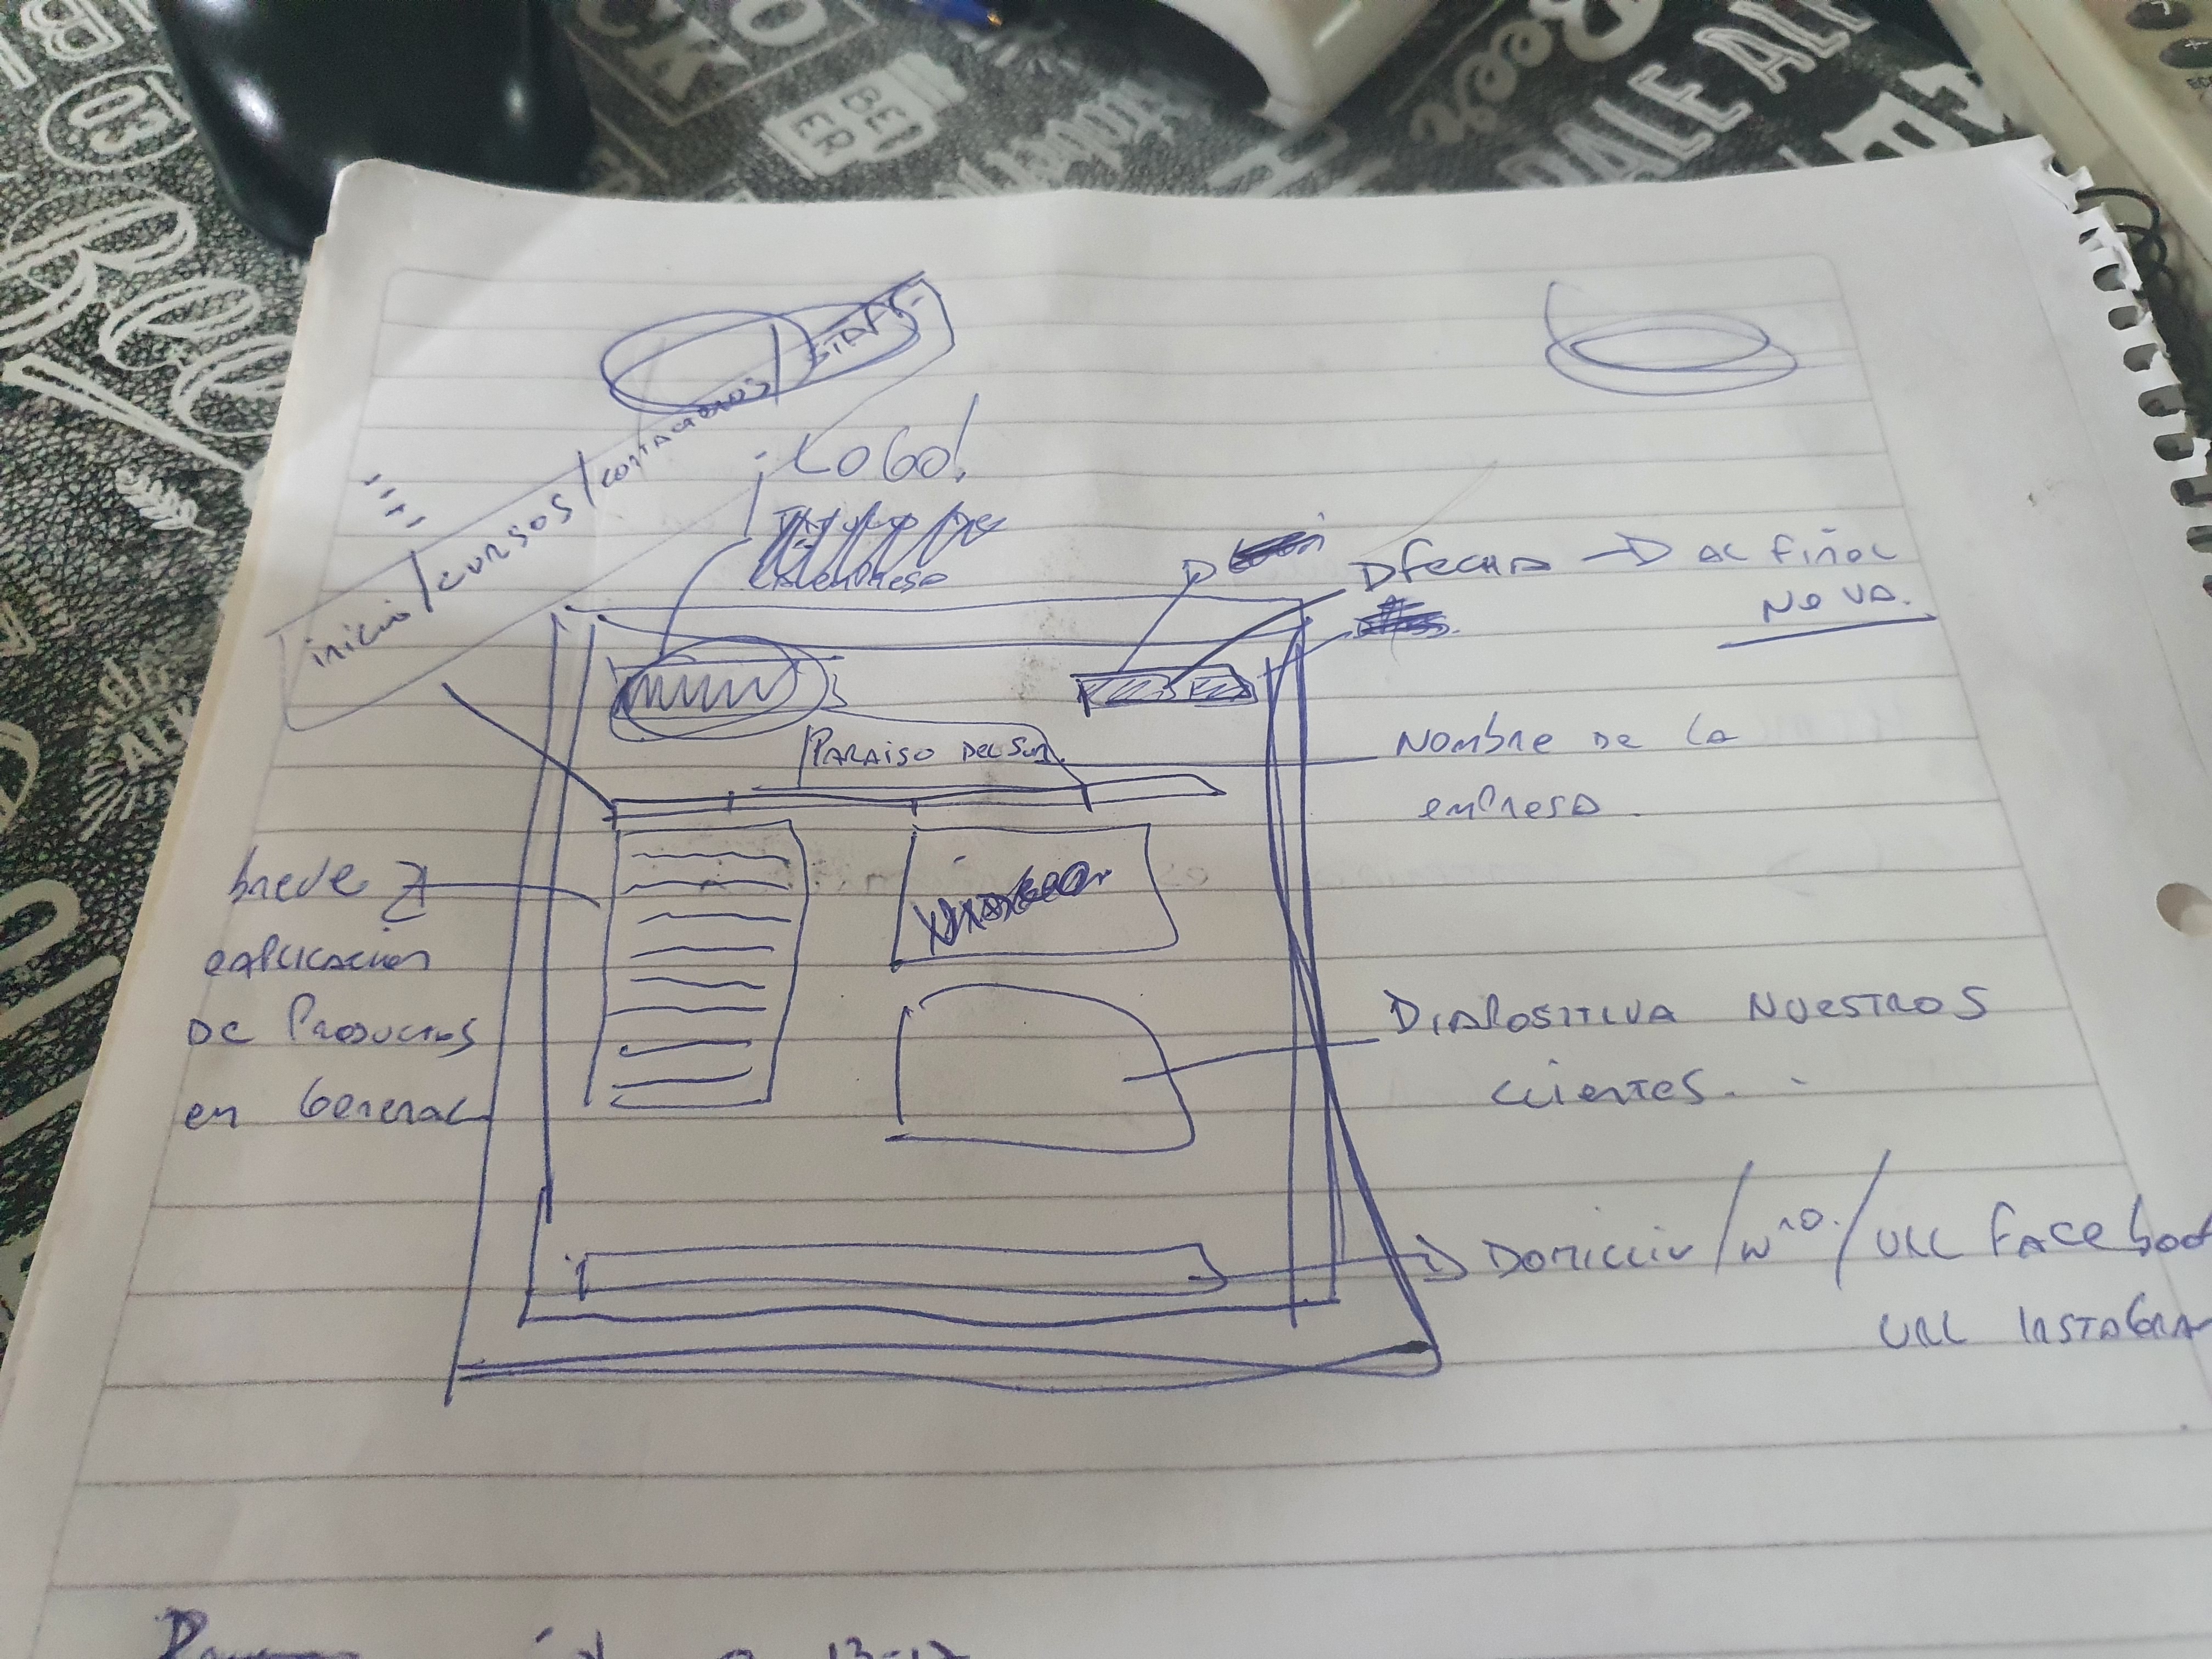 03
CK
BE
ER
Beer
PALE ALE
STAFS
inicio / cursos / contactenos /
¡LOGO!
La empresa
FECHA → AL Final
No va.
PARAISO DEL SUR
Nombre DE LA
empresa.
breve
explicacion
DE Productos
en General
DIAPOSITIVA NUESTROS
clientes.
DOMICILIO / Nro. / URL Facebook
URL INSTAGRAM